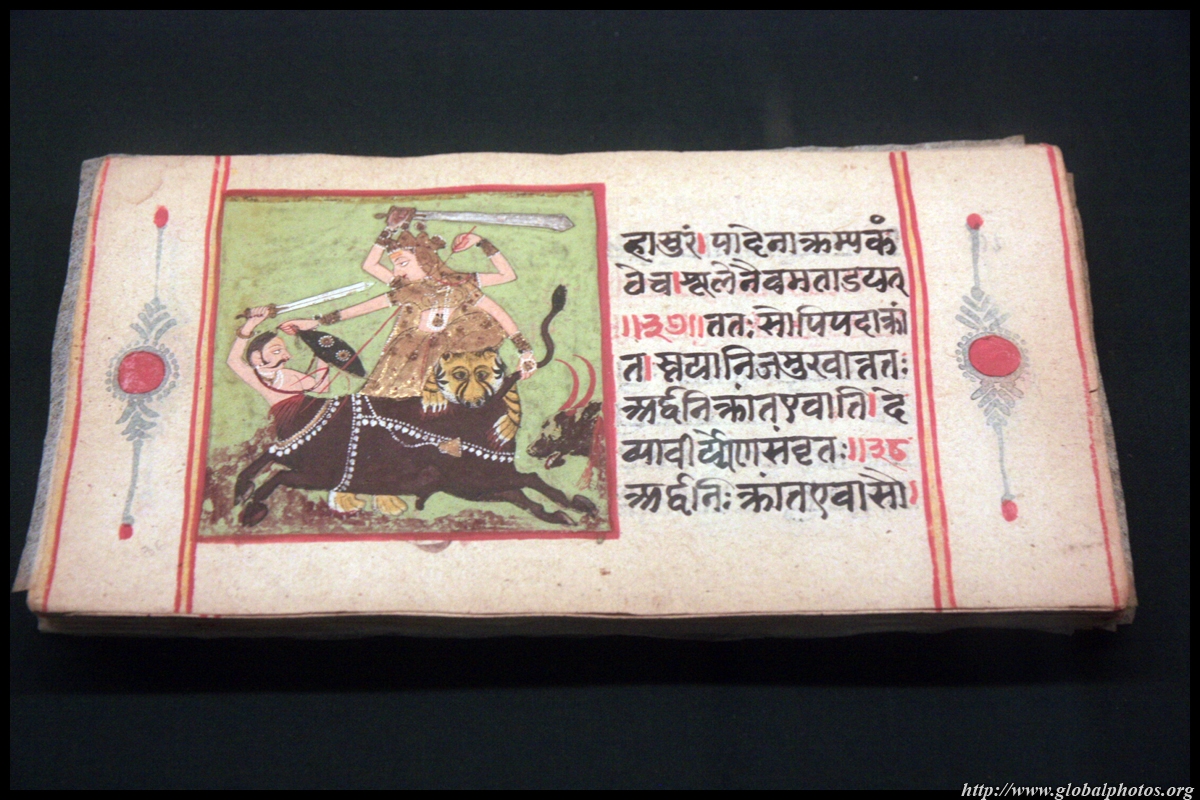 हासुरं। पादेनाक्रम्यकं
ठेच।शूलेनैवमताडयत्
॥३७॥ततःसोपिपदाक्रां
त।स्तयानिजमुखात्ततः
अर्द्धनिक्रांतएवाति।दे
व्यावीर्य्येणसंवृतः॥३८
अर्द्धनिःक्रांतएवासौ।
http://www.globalphotos.org